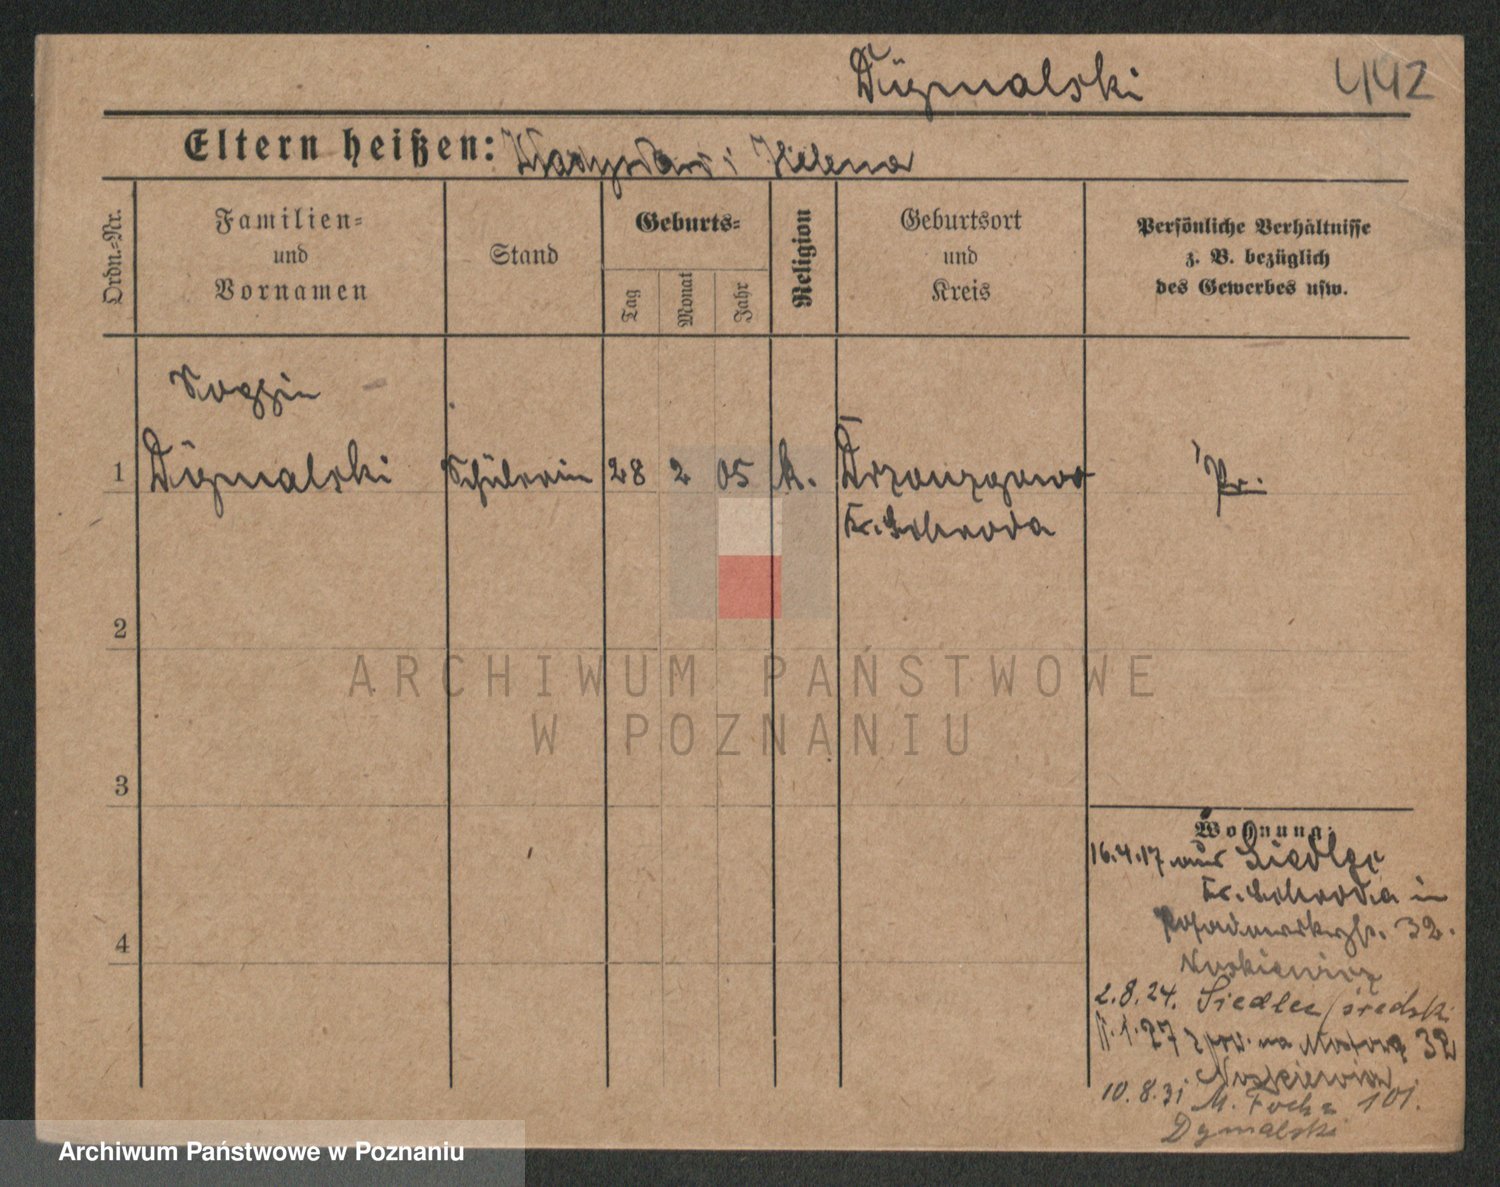 Dÿmalski 442
Eltern heißen: Władysław i Helena
Ordn.-Nr.
Familien-
und
Vornamen
Stand
Geburts-
Tag
Monat
Jahr
Religion
Geburtsort
und
Kreis
Persönliche Verhältnisse
z. B. bezüglich
des Gewerbes usw.
1 Dÿmalski Schülerin 28 2 05 k. Pr.
Kr. Schroda
2
3
4
Wohnung:
16.4.17. aus Siedlec
Kr. Schroda in
32.
2.8.24. Siedlec średzki
1.27 na 32
10.8.31 M. Focha 101.
Dymalski
ARCHIWUM PAŃSTWOWE
W POZNANIU
Archiwum Państwowe w Poznaniu